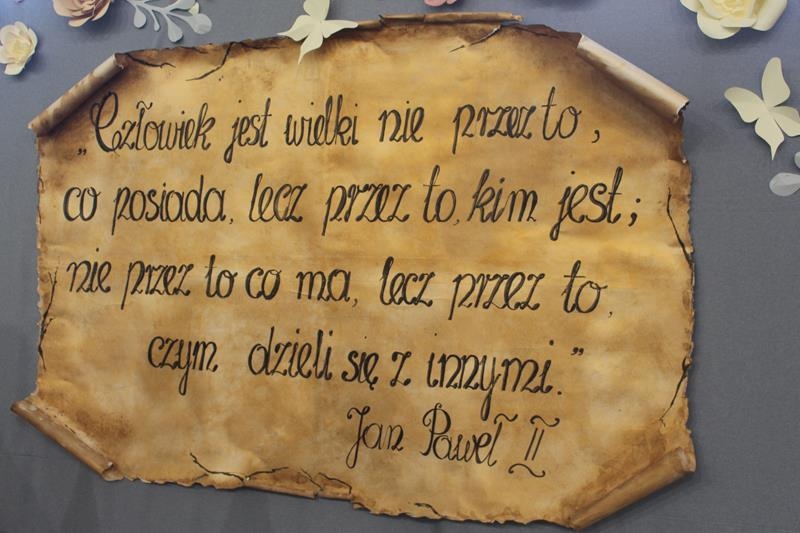 „Człowiek jest wielki nie przez to,
co posiada, lecz przez to, kim jest;
nie przez to co ma, lecz przez to,
czym dzieli się z innymi."
Jan Paweł II